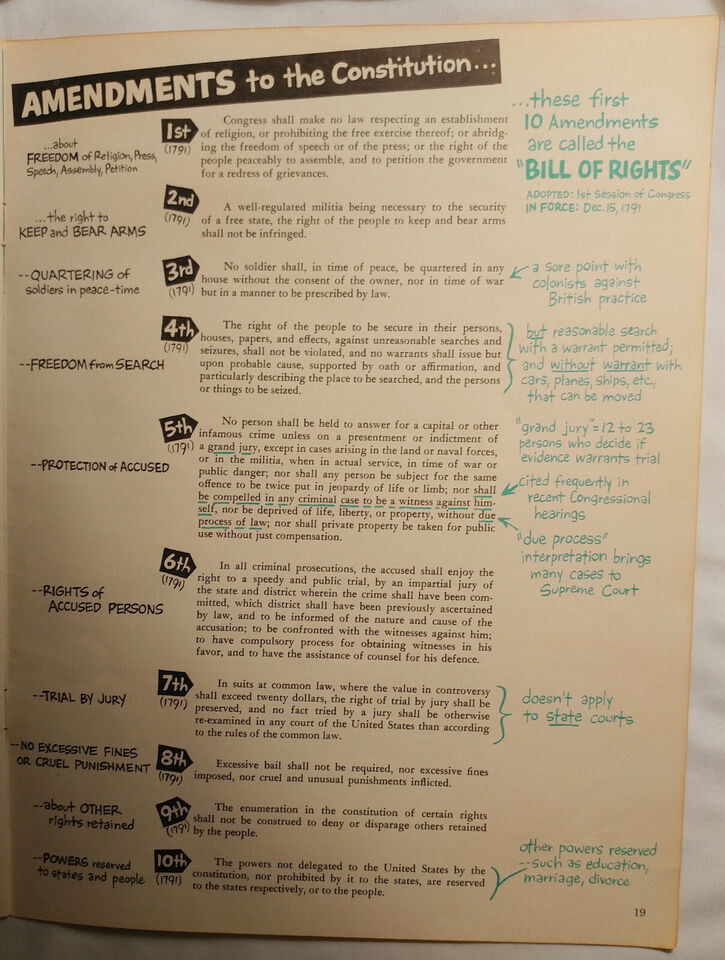 AMENDMENTS to the Constitution...
...these first
10 Amendments
are called the
"BILL OF RIGHTS"
ADOPTED: 1st Session of Congress
IN FORCE: Dec. 15, 1791
...about
FREEDOM of Religion, Press,
Speech, Assembly, Petition
1st
(1791)
Congress shall make no law respecting an establishment
of religion, or prohibiting the free exercise thereof; or abridg-
ing the freedom of speech or of the press; or the right of the
people peaceably to assemble, and to petition the government
for a redress of grievances.
...the right to
KEEP and BEAR ARMS
2nd
(1791)
A well-regulated militia being necessary to the security
of a free state, the right of the people to keep and bear arms
shall not be infringed.
--QUARTERING of
soldiers in peace-time
3rd
(1791)
No soldier shall, in time of peace, be quartered in any
house without the consent of the owner, nor in time of war
but in a manner to be prescribed by law.
a sore point with
colonists against
British practice
--FREEDOM from SEARCH
4th
(1791)
The right of the people to be secure in their persons,
houses, papers, and effects, against unreasonable searches and
seizures, shall not be violated, and no warrants shall issue but
upon probable cause, supported by oath or affirmation, and
particularly describing the place to be searched, and the persons
or things to be seized.
but reasonable search
with a warrant permitted;
and without warrant with
cars, planes, ships, etc.,
that can be moved
--PROTECTION of ACCUSED
5th
(1791)
No person shall be held to answer for a capital or other
infamous crime unless on a presentment or indictment of
a grand jury, except in cases arising in the land or naval forces,
or in the militia, when in actual service, in time of war or
public danger; nor shall any person be subject for the same
offence to be twice put in jeopardy of life or limb; nor shall
be compelled in any criminal case to be a witness against him-
self, nor be deprived of life, liberty, or property, without due
process of law; nor shall private property be taken for public
use without just compensation.
"grand jury"=12 to 23
persons who decide if
evidence warrants trial
cited frequently in
recent Congressional
hearings
"due process"
interpretation brings
many cases to
Supreme Court
--RIGHTS of
ACCUSED PERSONS
6th
(1791)
In all criminal prosecutions, the accused shall enjoy the
right to a speedy and public trial, by an impartial jury of
the state and district wherein the crime shall have been com-
mitted, which district shall have been previously ascertained
by law, and to be informed of the nature and cause of the
accusation; to be confronted with the witnesses against him;
to have compulsory process for obtaining witnesses in his
favor, and to have the assistance of counsel for his defence.
--TRIAL BY JURY
7th
(1791)
In suits at common law, where the value in controversy
shall exceed twenty dollars, the right of trial by jury shall be
preserved, and no fact tried by a jury shall be otherwise
re-examined in any court of the United States than according
to the rules of the common law.
doesn't apply
to state courts
--NO EXCESSIVE FINES
OR CRUEL PUNISHMENT
8th
(1791)
Excessive bail shall not be required, nor excessive fines
imposed, nor cruel and unusual punishments inflicted.
--about OTHER
rights retained
9th
(1791)
The enumeration in the constitution of certain rights
shall not be construed to deny or disparage others retained
by the people.
--POWERS reserved
to states and people
10th
(1791)
The powers not delegated to the United States by the
constitution, nor prohibited by it to the states, are reserved
to the states respectively, or to the people.
other powers reserved
--such as education,
marriage, divorce
19